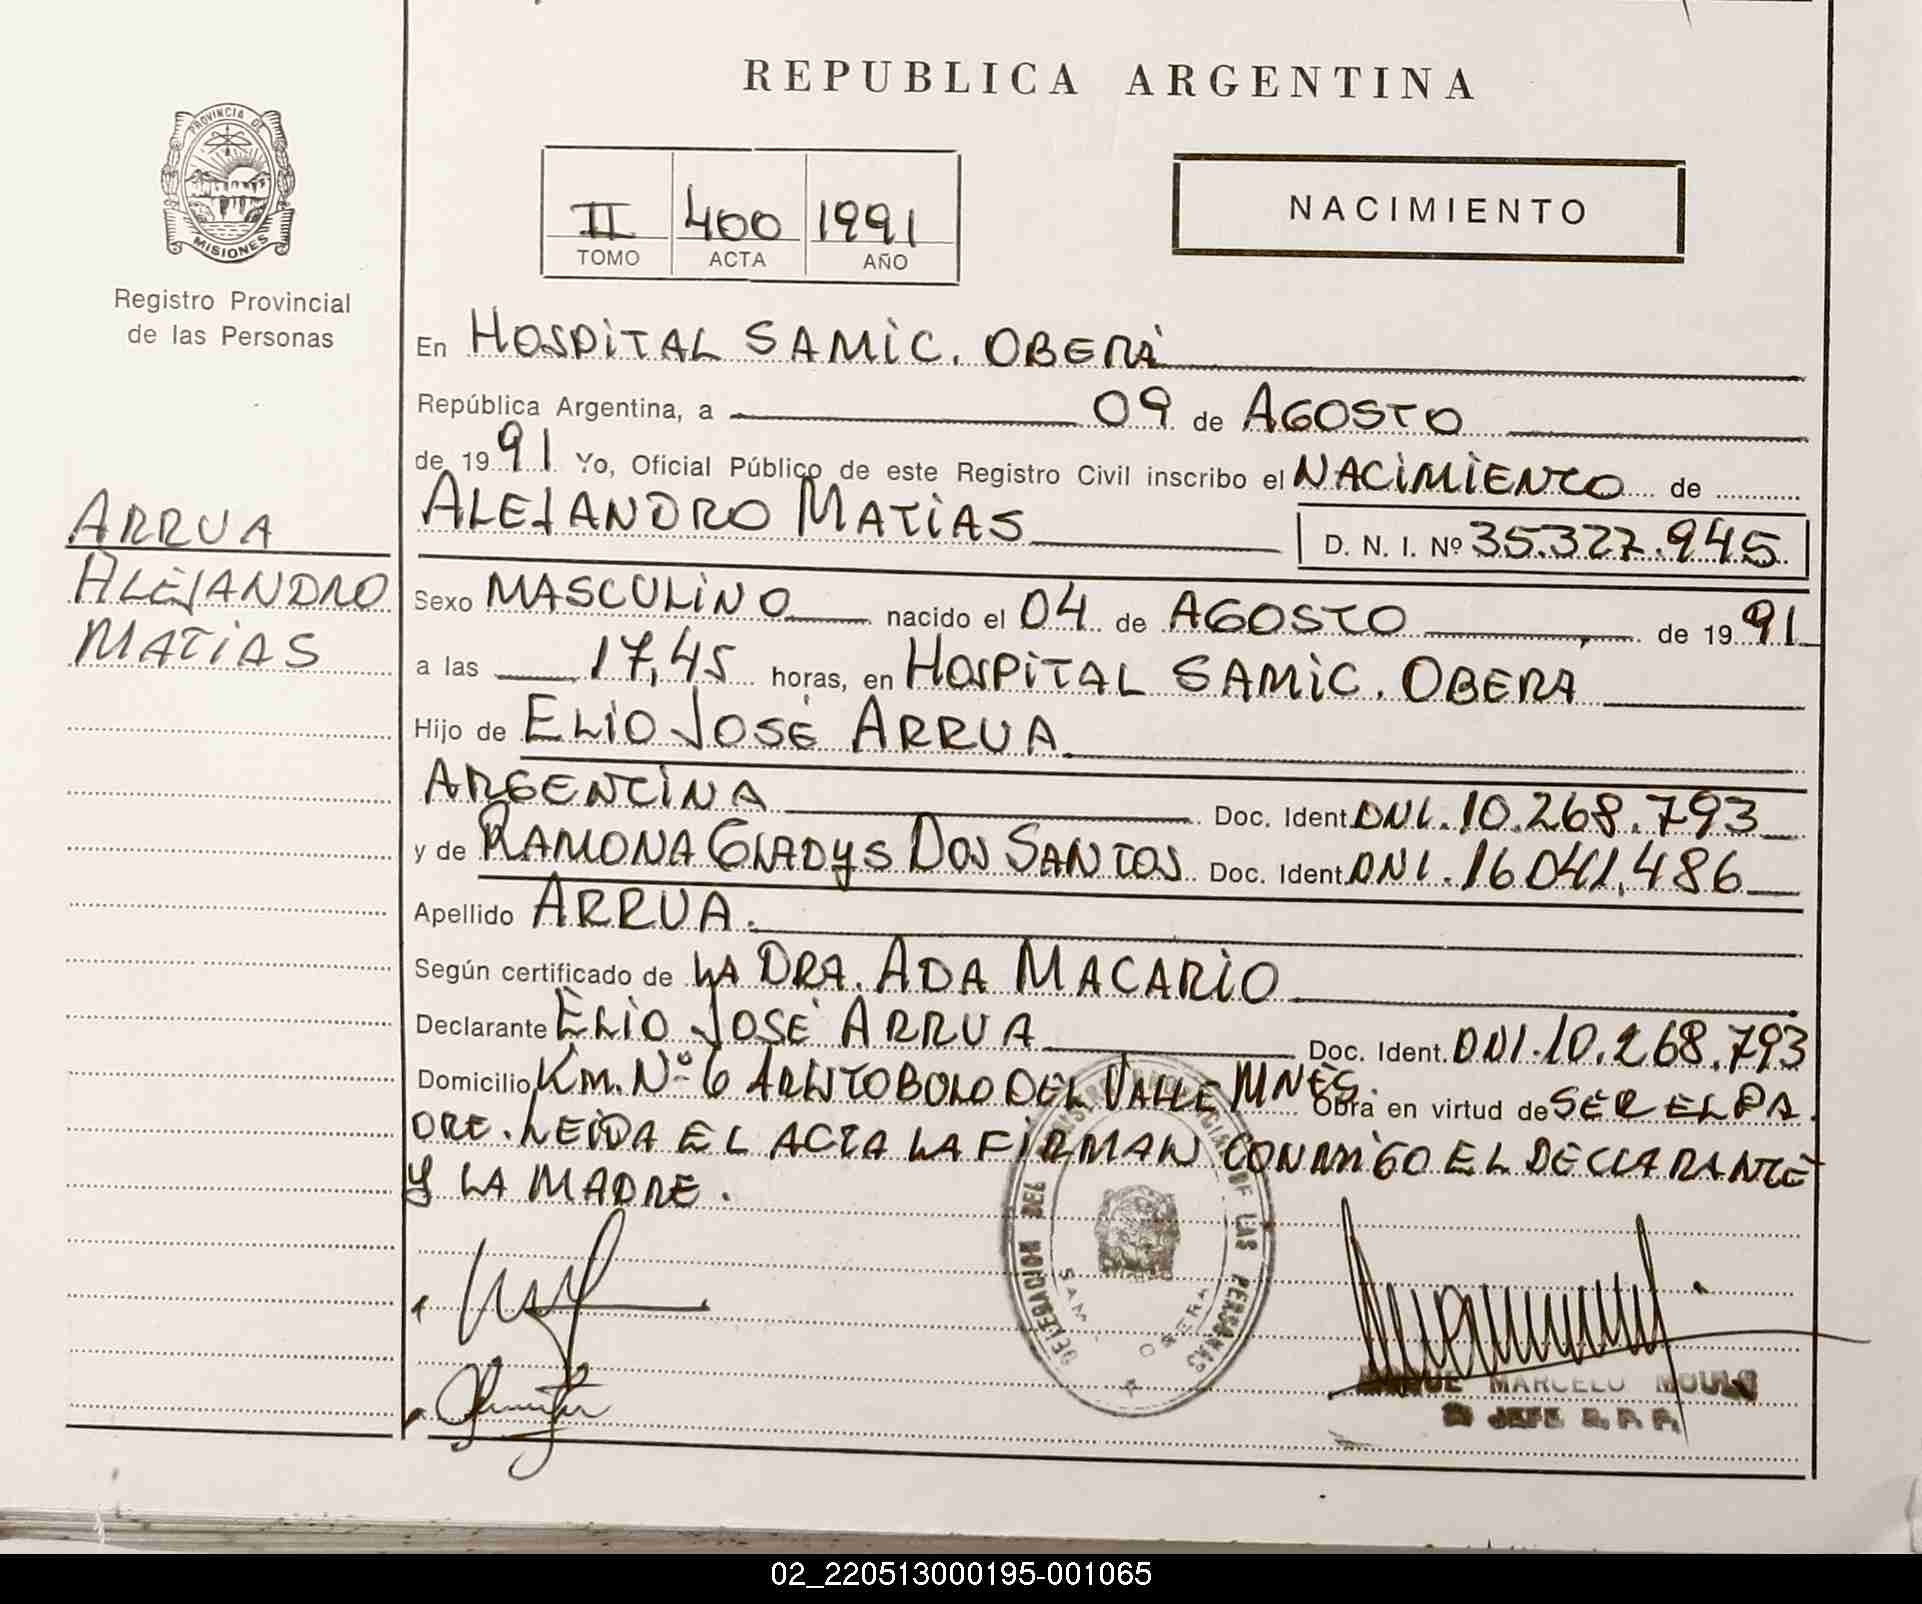 REPUBLICA ARGENTINA
PROVINCIA DE
MISIONES
Registro Provincial
de las Personas
II 400 1991
TOMO ACTA AÑO
NACIMIENTO
ARRUA
ALEJANDRO
MATIAS
En HOSPITAL SAMIC. OBERÁ
República Argentina, a 09 de AGOSTO
de 1991 Yo, Oficial Público de este Registro Civil inscribo el NACIMIENTO de
ALEJANDRO MATIAS D. N. I. Nº 35.327.945
Sexo MASCULINO nacido el 04 de AGOSTO de 1991
a las 17,45 horas, en HOSPITAL SAMIC. OBERA
Hijo de ELIO JOSÉ ARRUA
ARGENTINA Doc. Ident. DNI. 10.268.793
y de RAMONA GLADYS DOS SANTOS Doc. Ident. DNI. 16.041.486
Apellido ARRUA.
Según certificado de LA DRA. ADA MACARIO
Declarante ELIO JOSÉ ARRUA Doc. Ident. DNI. 10.268.793
Domicilio Km. Nº 6 ARISTOBOLO DEL VALLE MNES. Obra en virtud de SER EL PA
DRE. LEIDA EL ACTA LA FIRMAN CONMIGO EL DECLARANTE
Y LA MADRE.
DELEGACION DEL REGISTRO PROVINCIAL DE LAS PERSONAS
SAMIC OBERA
MARCELO
JEFE R. P. P.
02_220513000195-001065